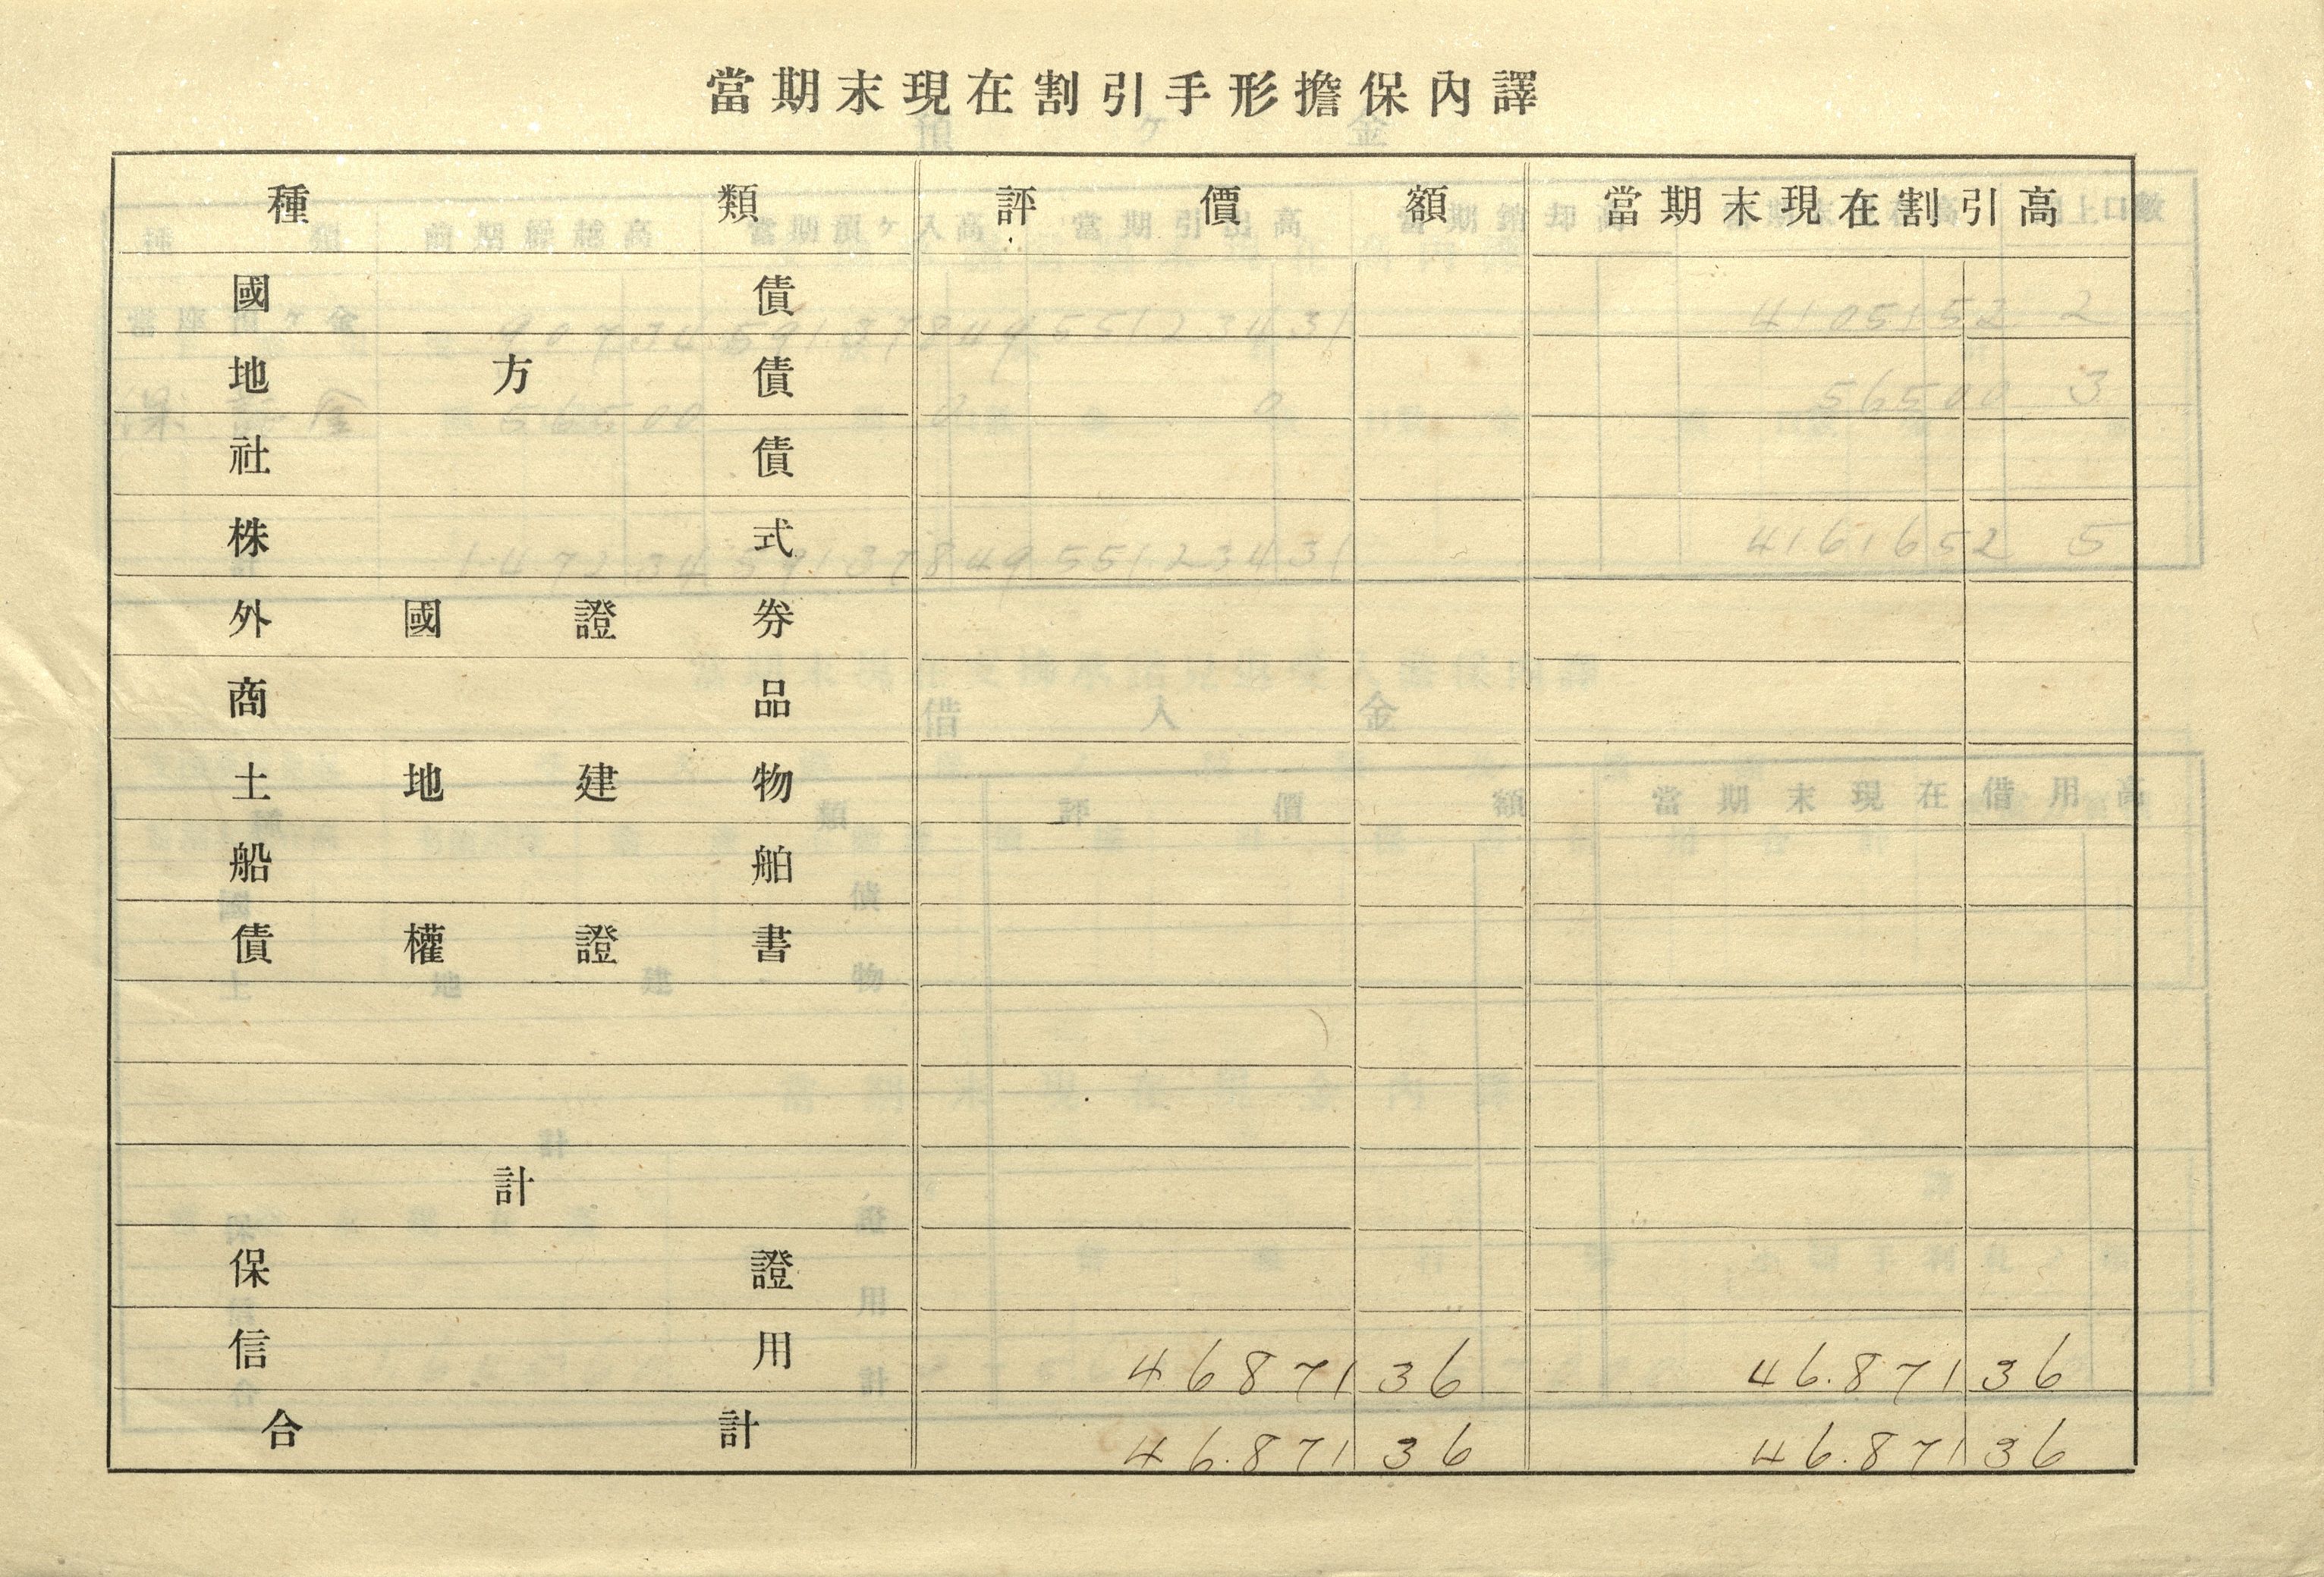 當期末現在割引手形擔保內譯
種類 評價額 當期末現在割引高
國債
地方債
社債
株式
外國證券
商品
土地建物
船舶
債權證書
計
保證
信用 46871 36 46.871 36
合計 46.871 36 46.871 36